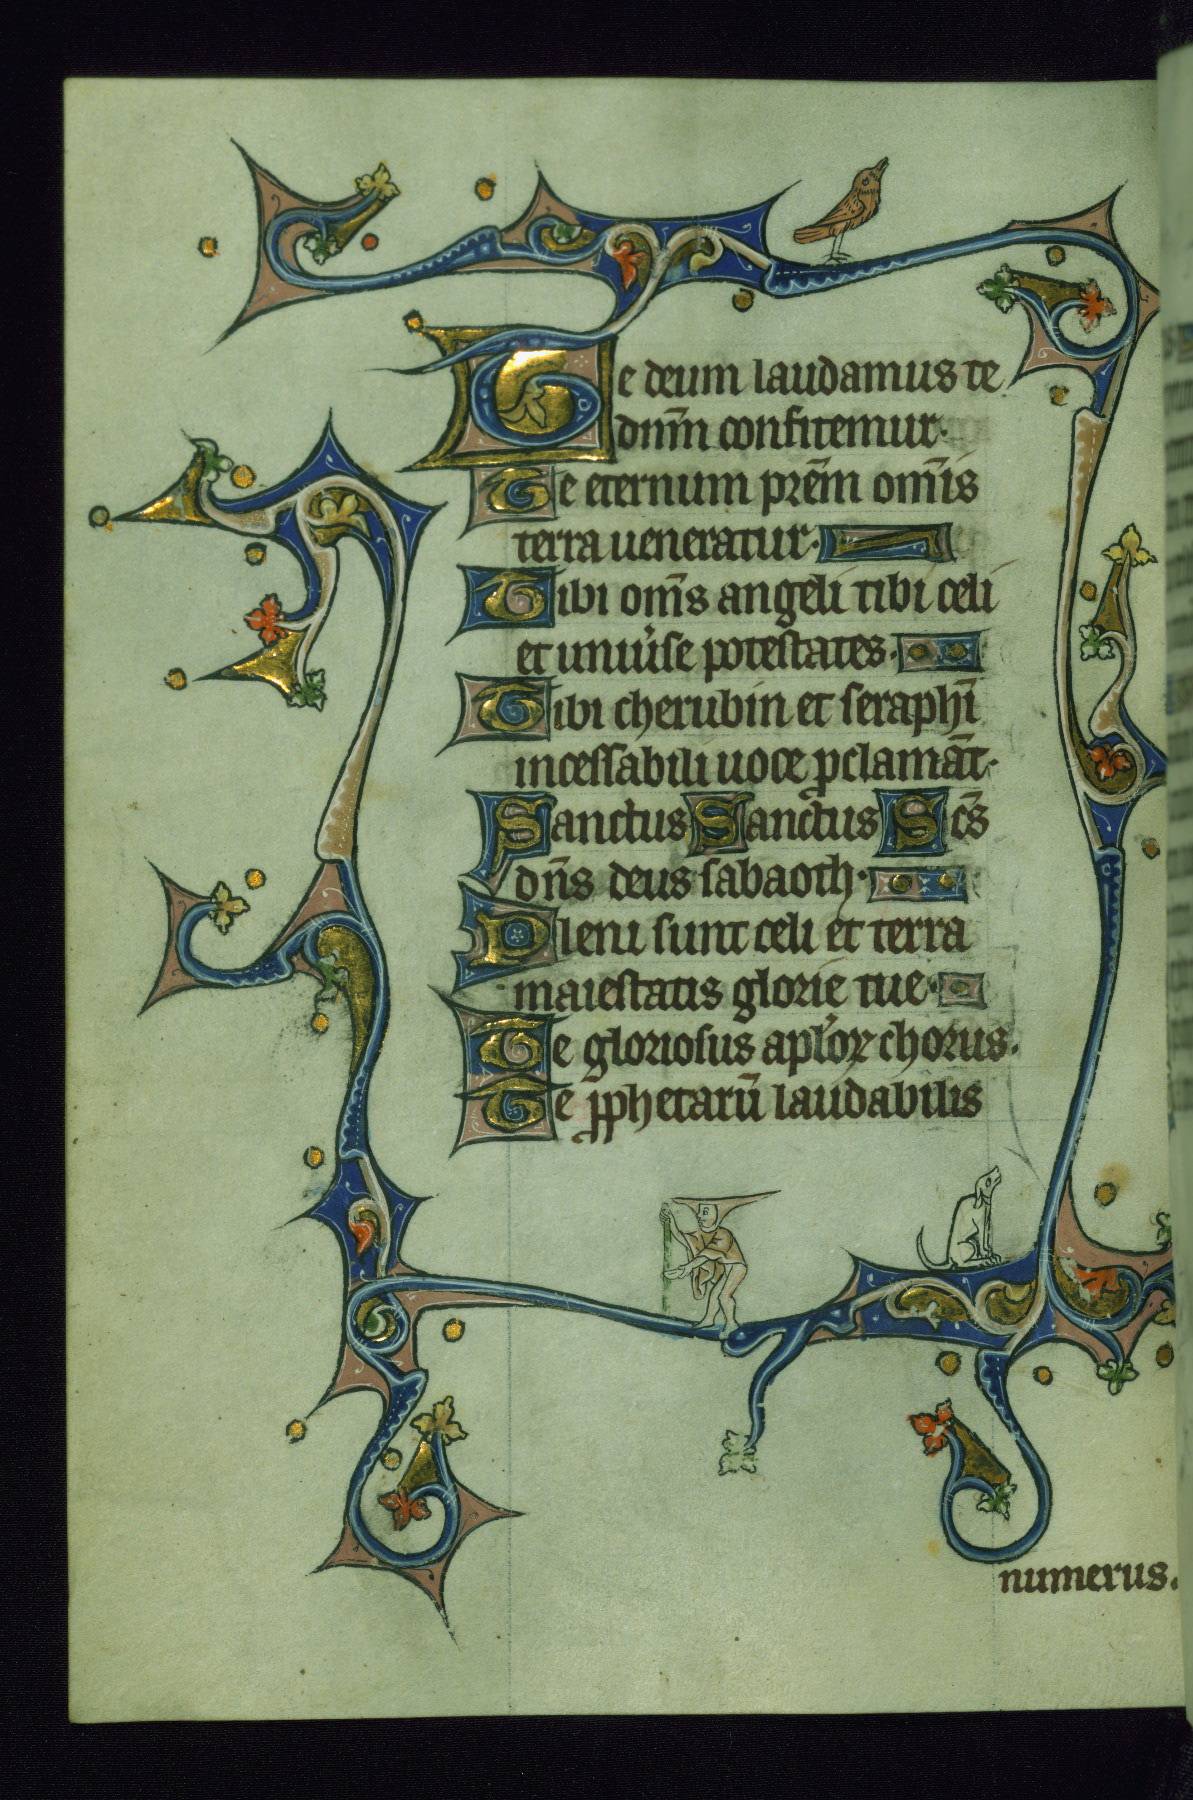 Te deum laudamus te
dnm̄ confitemur·
Te eternum prēm om̄is
terra ueneratur·
Tibi om̄s angeli tibi celi
et uniu'se potestates·
Tibi cherubin et seraphī
incessabili uoce ꝓclamāt·
Sanctus Sanctus Sc̄s
dn̄s deus sabaoth·
Pleni sunt celi et terra
maiestatis glorie tue·
Te gloriosus apl'oꝝ chorus·
Te ꝓphetarū laudabilis
numerus.